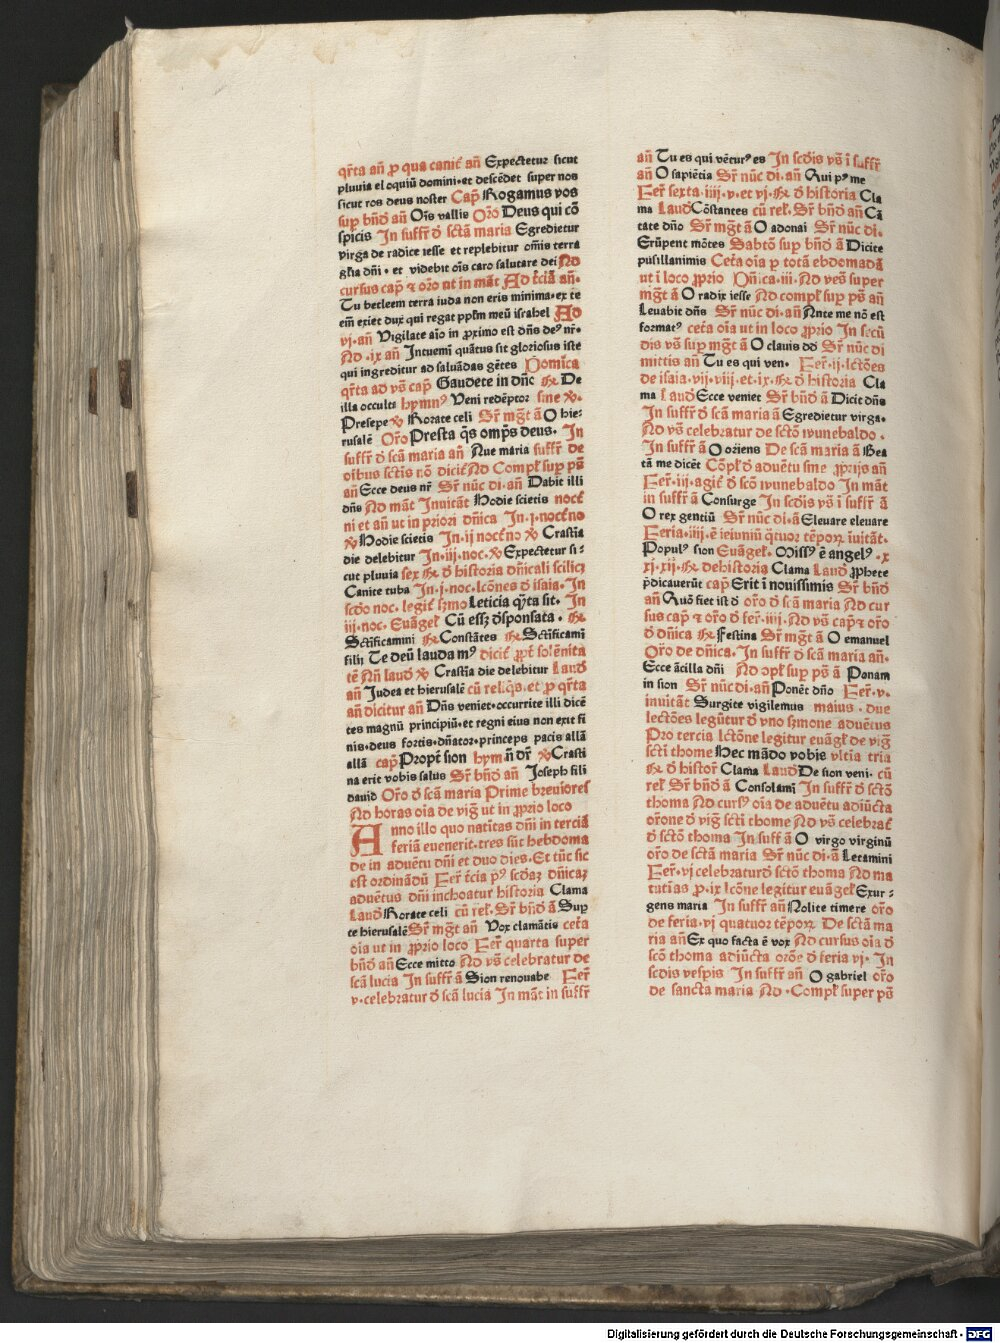 qr̄ta an̄ ꝓ qua canit᷑ an̄ Expectetur sicut
pluuia eloquiū domini·et descēdet super nos
sicut ros deus noster Cap̄ Rogamus vos
sup bn̄d an̄ Oīs vallis Oro Deus qui cō
spicis In suffr̄ d̄ sctā maria Egredietur
virga de radice iesse et replebitur om̄is terra
gl̄ia dn̄i · et videbit oīs caro salutare dei Ad
cursus cap̄ ⁊ oro̅ ut in māt Ad t̄ciā an̄·
Tu betleem terra iuda non eris minima·ex te
em̄ exiet dux qui regat pplm̄ meū israhel Ad
vj·an̄ Vigilate aīo in ꝓximo est dn̄s de⁹ nr̄·
Ad ·ix an̄ Intuemī quātus sit gloriosus iste
qui ingreditur ad saluādas gētes Domīca
qr̄ta ad vs̄ cap̄ Gaudete in dn̄c ℟ De
illa occulta hymn⁹ Veni redēptor sine ℣·
Presepe ℣ Rorate celi Sr̄ mgt̄ a O hie-
rusalē Oro̅ Presta qs̄ omps̄ deus· In
suffr̄ d̄ scā maria an̄ Aue maria suffr̄ de
oībus sctīs nō dicit᷑ Ad Compl̄ sup ps̄
an̄ Ecce deus nr̄ Sr̄ nūc di·an̄ Dabit illi
dn̄s Ad māt Inuitāt Hodie scietis noct̄
ni et an̄ ut in priori dn̄ica In·j·noct̄no
℣ Hodie scietis In·ij noct̄no ℣ Crastīa
die delebitur In·iij·noc·℣ Expectetur si-
cut pluuia sex ℟ d̄ historia dn̄icali scilicꝫ
Canite tuba In·j·noc·lcōnes d̄ isaia·In
scd̄o noc·legit᷑ sꝫmo Leticia qy̅ta sit· In
iij·noc·Euāgel̄ Cū essꝫ dsponsata · ℟
Sctīficamini ℟ Constātes ℟ Sctīficamī
filij Te deū laudam⁹ dicit᷑ ꝓpt̄ solēnita
tē An̄ laud ℣ Crastīa die delebitur Laud
an̄ Judea et hierusalē cū reliqs̄·et ꝓ qr̄ta
an̄ dicitur an̄ Dn̄s veniet·occurrite illi dicē
tes magnū principiū·et regni eius non erit fi
nis·deus fortis·dn̄ator·princeps pacis allā
allā cap̄ Propt̄ sion hym n̄ dr̄ ℣ Crasti
na erit vobis salus Sr̄ bn̄d an̄ Joseph fili
dauid Oro̅ d̄ scā maria Prime breuiores
Ad horas oīa de vig̅ ut in ꝓprio loco
Anno illo quo natītas dn̄i in terciā
feriā euenerit·tres sūt hebdoma
de in aduētu dn̄i et duo dies·Et tūc sic
est ordinādū Fer̄ t̄cia p⁹ scd̄aꝫ dn̄icaꝫ
aduētus dn̄i inchoatur historia Clama
Laud Rorate celi cū rel̄·Sr̄ bn̄d a Sup
te hierusalē Sr̄ mgt̄ an̄ Vox clamātis cet̄a
oīa ut in ꝓprio loco Fer̄ quarta super
bn̄d an̄ Ecce mitto Ad vs̄ celebratur de
scā lucia In suffr̄ ā Sion renouabe Fer̄
v·celebratur d̄ scā lucia In māt in suffr̄
an̄ Tu es qui vētur⁹ es In scd̄is vs̄ ī suffr̄
an̄ O sapiētia Sr̄ nūc di·an̄ Qui p⁹ me
Fer̄ sexta·iiij·v·et vj·℟ d̄ historia Cla
ma Laud Cōstantes cū rel̄·Sr̄ bn̄d an̄ Cā
tate dn̄o Sr̄ mgt̄ a O adonai Sr̄ nūc di·
Erūpent mōtes Sabtō sup bn̄d ā Dicite
pusillanimis Cet̄a oīa p totā ebdomadā
ut i loco ꝓprio Dn̄ica·iij·Ad ves̄ super
mgt̄ ā O radix iesse Ad compl̄ sup ps̄ an̄
Leuabit dn̄s Sr̄ nūc di·an̄ Ante me nō est
format⁹ cet̄a oīa ut in loco ꝓprio In secū
dis vs̄ sup mgt̄ ā O clauis dd Sr̄ nūc di
mittis an̄ Tu es qui ven· Fer̄·ij·lctōes
de isaia·vij·viij·et·ix·℟ d̄ historia Cla
ma Laud Ecce veniet Sr̄ bn̄d ā Dicit dn̄s
In suffr̄ d̄ scā maria ā Egredietur virga·
Ad vs̄ celebratur de sctō wunebaldo ·
In suffr̄ ā O oriens De scā maria ā Bea
tā me dicēt Cōpl̄ d̄ aduētu sine ꝓprijs an̄
Fer̄·iij·agit᷑ d̄ scō wunebaldo In māt
in suffr̄ ā Consurge In scd̄is vs̄ ī suff̄ ā
O rex gentiū Sr̄ nūc di·ā Eleuare eleuare
Feria·iiij·ē ieiuniū q̄tuor tēpoꝝ īuitāt·
Popul⁹ sion Euāgel̄· Miss⁹ ē angel⁹ ·x
xj·xij·℟ dehistoria Clama Laud ꝓphete
p̄dicauerūt cap̄ Erit ī nouissimis Sr̄ bn̄d
an̄ Quō fiet istd̄ oro̅ d̄ scā maria Ad cur
sus cap̄ ⁊ oro̅ d̄ fer̄·iiij·Ad vs̄ cap̄ ⁊ oro̅
d̄ dn̄ica ℟ Festina Sr̄ mgt̄ ā O emanuel
Oro̅ de dn̄ica·In suffr̄ d̄ scā maria an̄·
Ecce ācilla dn̄i Ad ↄpl̄ sup ps̄ ā Ponam
in sion Sr̄ nūc di·an̄ Ponēt dn̄o Fer̄·v·
inuitāt Surgite vigilemus maius · due
lectōes legūtur d̄ vno sꝫmone aduētus
Pro tercia lctōne legitur euāgl̄ de vig̅
sctī thome Hec mādo vobis vltīa tria
℟ d̄ histor̄ Clama Laud De sion veni· cū
rel̄ Sr̄ bn̄d ā Consolamī In suffr̄ d̄ sctō
thoma Ad curs⁹ oīa de aduētu adiūcta
orōne d̄ vig̅ sctī thome Ad vs̄ celebrat᷑
d̄ sctō thoma In suff̄ ā O virgo virginū
oro̅ de sctā maria Sr̄ nūc di·ā Letamini
Fer̄·vj celebraturd̄ sctō thoma Ad ma
tutīas ꝓ·ix lcōne legitur euāgel̄ Exur-
gens maria In suffr̄ an̄ Nolite timere oro̅
de feria·vj quatuor tēpoꝝ De sctā ma
ria an̄ Ex quo facta ē vox Ad cursus oīa d̄
scō thoma adiūcta orōe d̄ feria vj· In
scd̄is vespis In suffr̄ an̄ O gabriel oro̅
de sancta maria Ad ·Compl̄ super ps̄
Digitalisierung gefördert durch die Deutsche Forschungsgemeinschaft - DFG